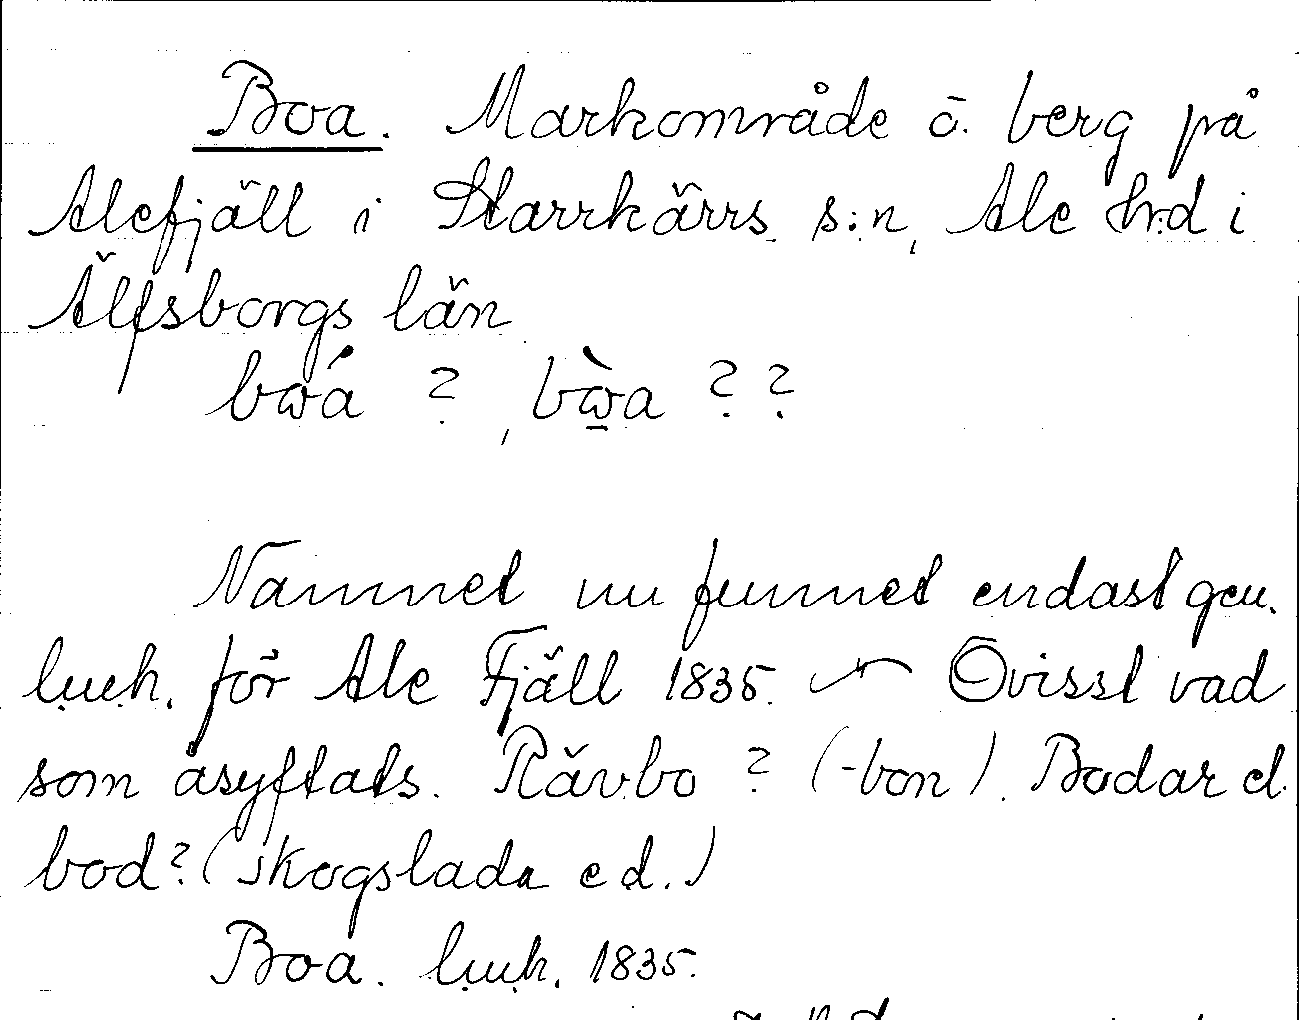 Boa. Markområde o. berg på
Alefjäll i Starrkärrs s:n, Ale h:d i
Älfsborgs län
bωá ? , bὼ̱a ? ?
Namnet nu funnet endast gen.
l.u.h. för Ale Fjäll 1835. Ovisst vad
som åsyftats. Rävbo ? (-bon). Bodar el.
bod? (skogslada e d.)
Boa. l.u.h. 1835.